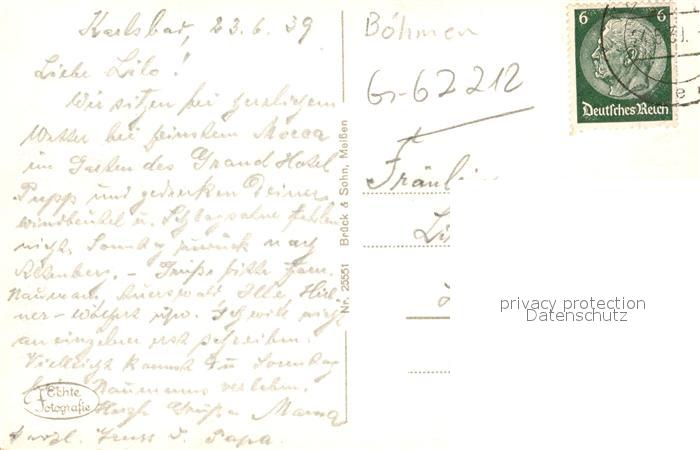 Karlsbad, 23.6.39
Liebe Lilo!
Wir sitzen bei herrlichem
Wetter bei feinstem Mocca
im Garten des Grand Hotel
Pupp und gedenken Deiner
windbeutel u. Schlagsahne fehlen
nicht. Sonntag zurück nach
Altenberg. - Grüße bitte Fam.
Nauman, Auerswald, Ille,
usw. Ich will nicht
an einzelne erst schreiben.
Vielleicht kannst Du Sonntag
bei Naumanns verleben.
Herzl. Grüße Mama
herzl. Gruss d. Papa.
Echte
Fotografie
Nr. 25551 Brück & Sohn, Meißen
Böhmen
Gr-67212
6 6
Deutsches Reich
Fräulein
privacy protection
Datenschutz